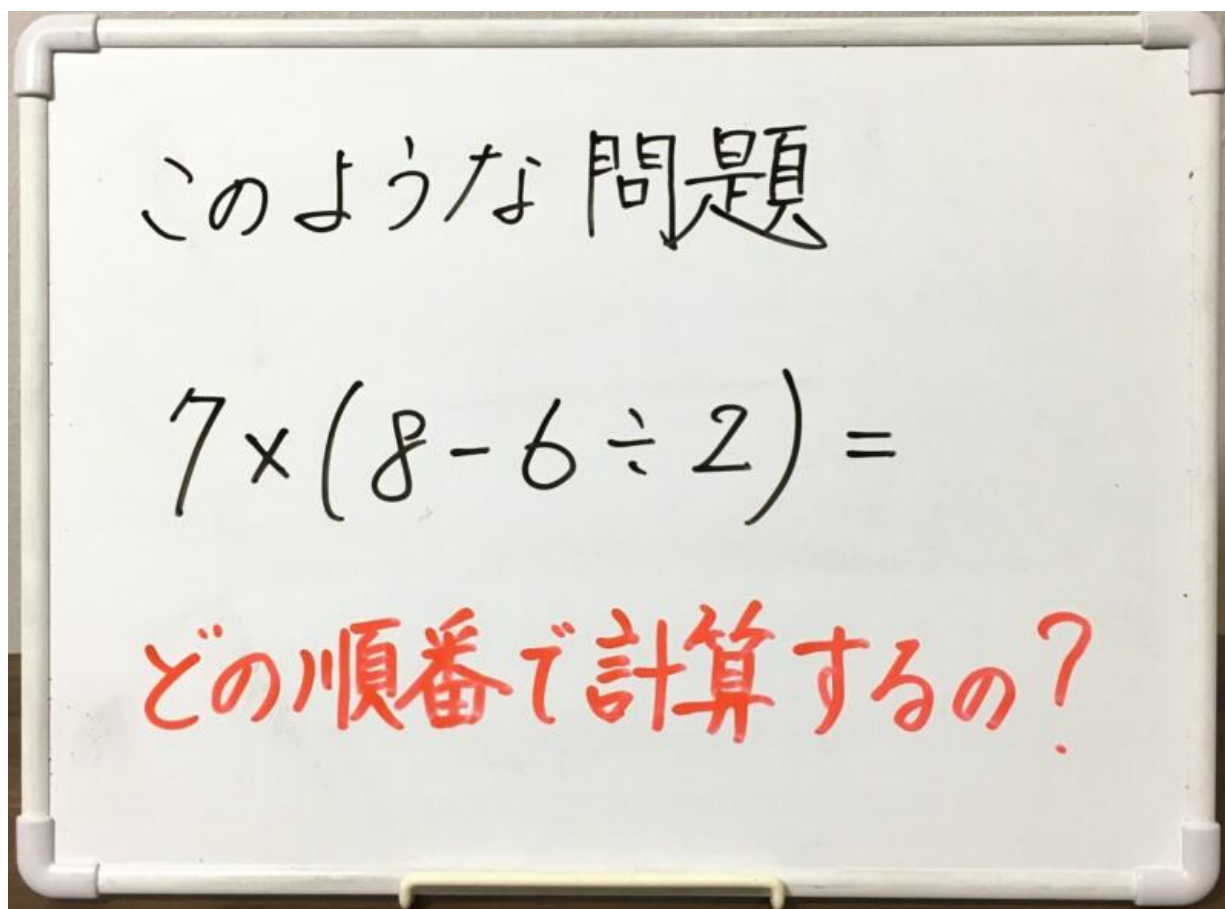 このような問題
7×(8-6÷2)=
どの順番で計算するの?